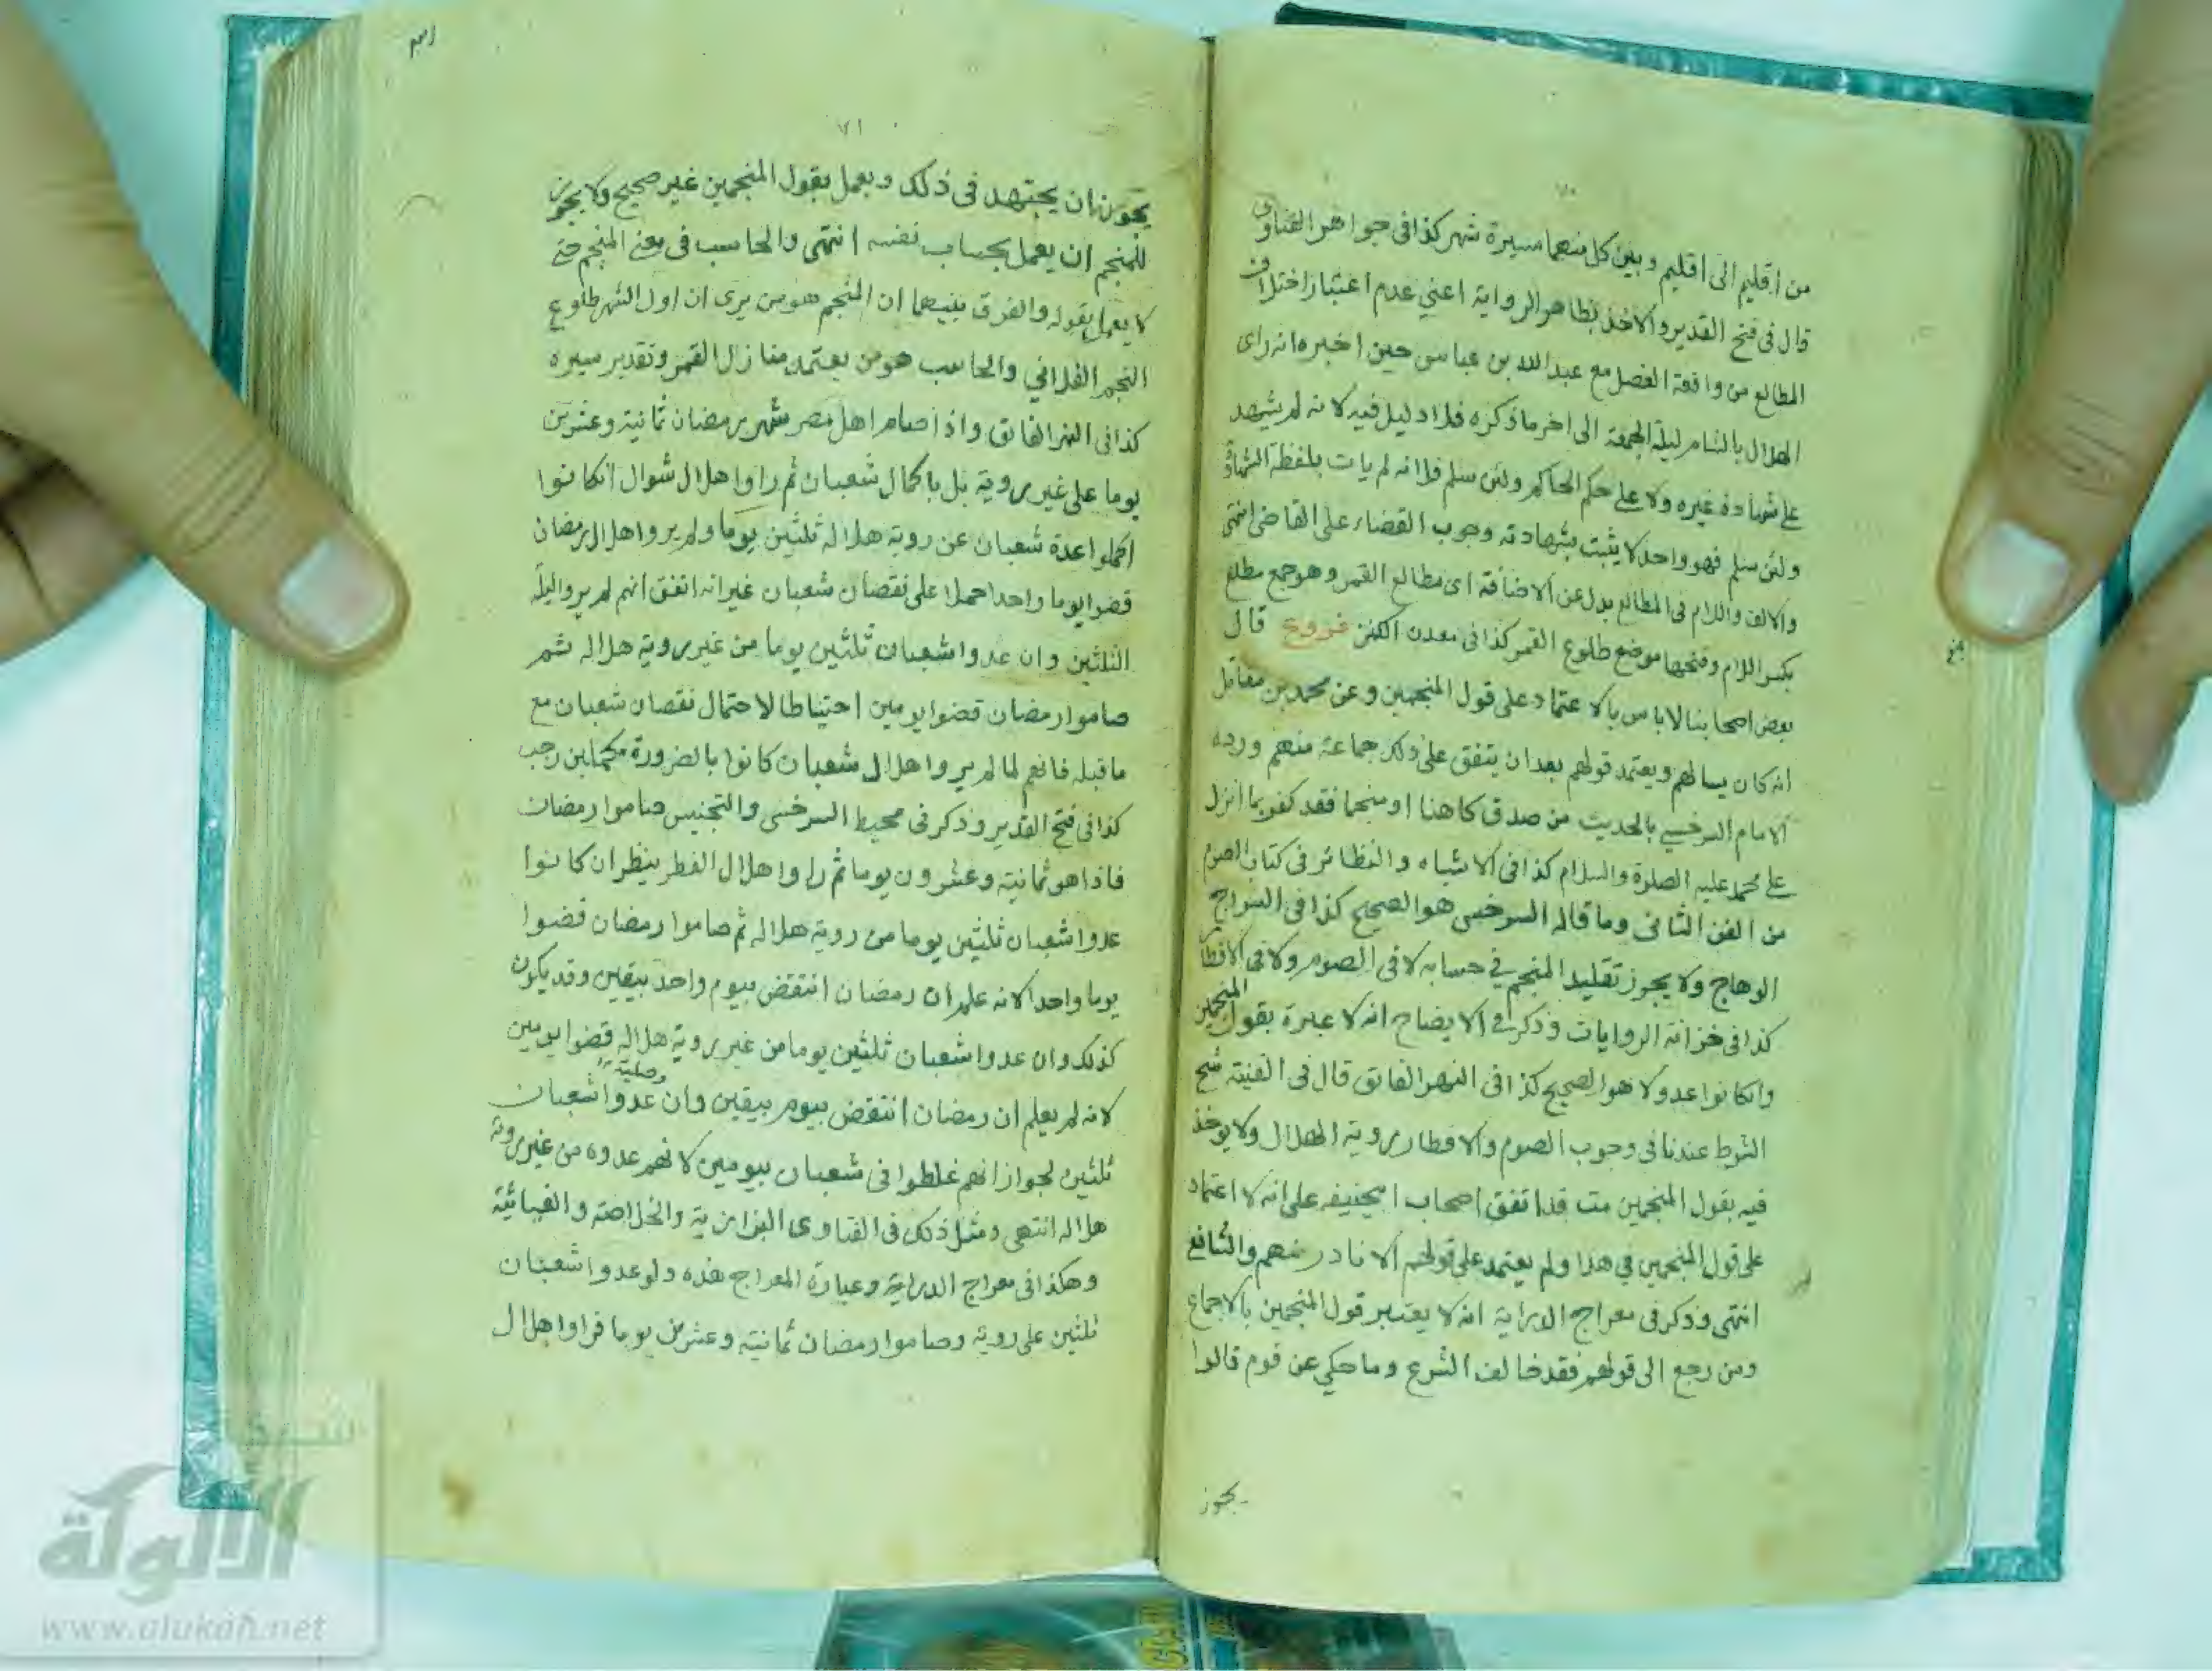 ٧٠
من اقليم الى اقليم وبين كل منهما مسيرة شهر كذا فى جواهر الفتاوى
قال فى فتح القدير والاخذ بظاهر الرواية اعني عدم اعتبار اختلاف
المطالع من واقعة الفضل مع عبد الله بن عباس حين اخبره انه راى
الهلال بالشام ليلة الجمعة الى اخر ما ذكره فلا دليل فيه لانه لم يشهد
على شهادة غيره ولا على حكم الحاكم ولئن سلم فلانه لم يات بلفظة الشهادة
ولئن سلم فهو واحد لا يثبت بشهادته وجوب القضاء على القاضى انتهى
والالف واللام فى المطالع بدل عن الاضافة اى مطالع القمر وهو جمع مطلع
بكسر اللام وفتحها موضع طلوع القمر كذا فى معدن الكنز فروع قال
بعض اصحابنا لا باس بالاعتماد على قول المنجمين وعن محمد بن مقاتل
انه كان يسالهم ويعتمد قولهم بعد ان يتفق على ذلك جماعة منهم ورده
الامام السرخسي بالحديث من صدق كاهنا او منجما فقد كفر بما انزل
على محمد عليه الصلوة والسلام كذا فى الاشباه والنظائر فى كتاب الصوم
من الفن الثانى وما قاله السرخسى هو الصحيح كذا فى السراج
الوهاج ولا يجوز تقليد المنجم في حسابه لا فى الصوم ولا فى الافطار
كذا فى خزانة الروايات وذكر في الايضاح انه لا عبرة بقول المنجمين
وان كانوا عدولا هو الصحيح كذا فى النهر الفائق قال فى القنية شح
الشرط عندنا فى وجوب الصوم والافطار روية الهلال ولا يوخذ
فيه بقول المنجمين مت قد اتفق اصحاب ابيحنيفه على انه لا اعتماد
على قول المنجمين في هذا ولم يعتمد على قولهم الا نادر منهم والشافع
انتهى وذكر فى معراج الدراية انه لا يعتبر قول المنجمين بالاجماع
ومن رجع الى قولهم فقد خالف الشرع وما حكي عن قوم قالوا
يجوز
٧١
يجوز ان يجتهد فى ذلك ويعمل بقول المنجمين غير صحيح ولا يجوز
للمنجم ان يعمل بحساب نفسه انتهى والحاسب فى معنى المنجم حتى
لا يعمل بقوله والفرق بينهما ان المنجم هو من يرى ان اول الشهر طلوع
النجم الفلاني والحاسب هو من يعتمد منازل القمر وتقدير سيره
كذا فى النهر الفائق واذا صام اهل مصر شهر رمضان ثمانية وعشرين
يوما على غير روية بل باكمال شعبان ثم راوا هلال شوال ان كانوا
اكملوا عدة شعبان عن روية هلاله ثلثين يوما ولم يروا هلال رمضان
قضوا يوما واحدا حملا على نقصان شعبان غير انه اتفق انهم لم يروا ليلة
الثلثين وان عدوا شعبان ثلثين يوما من غير روية هلاله ثم
صاموا رمضان قضوا يومين احتياطا لاحتمال نقصان شعبان مع
ما قبله فانهم لما لم يروا هلال شعبان كانوا بالضرورة مكملين رجب
كذا فى فتح القدير وذكر فى محيط السرخسى والتجنيس صاموا رمضان
فاذا هو ثمانية وعشرون يوما ثم راوا هلال الفطر ينظر ان كانوا
عدوا شعبان ثلثين يوما من روية هلاله ثم صاموا رمضان قضوا
يوما واحدا لانه علم ان رمضان انتقض بيوم واحد بيقين وقد يكون
كذلك وان عدوا شعبان ثلثين يوما من غير روية هلاله قضوا يومين
لانه لم يعلم ان رمضان انتقض بيوم بيقين وان وصلية عدوا شعبان
ثلثين لجواز انهم غلطوا فى شعبان بيومين لانهم عدوه من غير روية
هلاله انتهى ومثل ذلك فى الفتاوى البزازية والخلاصة والغياثية
وهكذا فى معراج الدراية وعبارة المعراج هذه ولو عدوا شعبان
ثلثين على روية وصاموا رمضان ثمانية وعشرين يوما فراوا هلال
شبكة
الألوكة
www.alukah.net